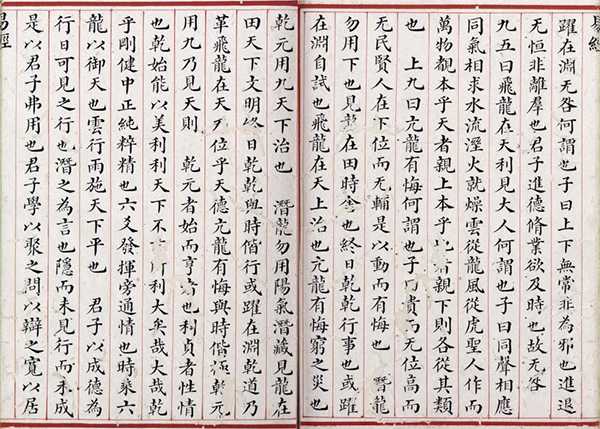 易經
躍在淵无咎何謂也子曰上下無常非為邪也進退
无恒非離羣也君子進德脩業欲及時也故无咎
九五曰飛龍在天利見大人何謂也子曰同聲相應
同氣相求水流溼火就燥雲從龍風從虎聖人作而
萬物覩本乎天者親上本乎者親下則各從其類
也 上九曰亢龍有悔何謂也子貴而无位高而
无民賢人在下位而无輔是以動而有悔也 潛龍
勿用下也見龍在田時舍也終日乾乾行事也或躍
在淵自試也飛龍在天上治也亢龍有悔窮之災也
乾元用九天下治也 潛龍勿用陽氣潛藏見龍在
田天下文明終日乾乾與時偕行或躍在淵乾道乃
革飛龍在天乃位乎天德亢龍有悔與時偕極乾元
用九乃見天則 乾元者始而亨者也利貞者性情
也乾始能以美利利天下不利大矣哉大哉乾
乎剛健中正純粹精也六爻發揮旁通情也時乘六
龍以御天也雲行雨施天下平也 君子以成德為
行日可見之行也潛之為言也隱而未見行而未成
是以君子弗用也君子學以聚之問以辯之寬以居
易經